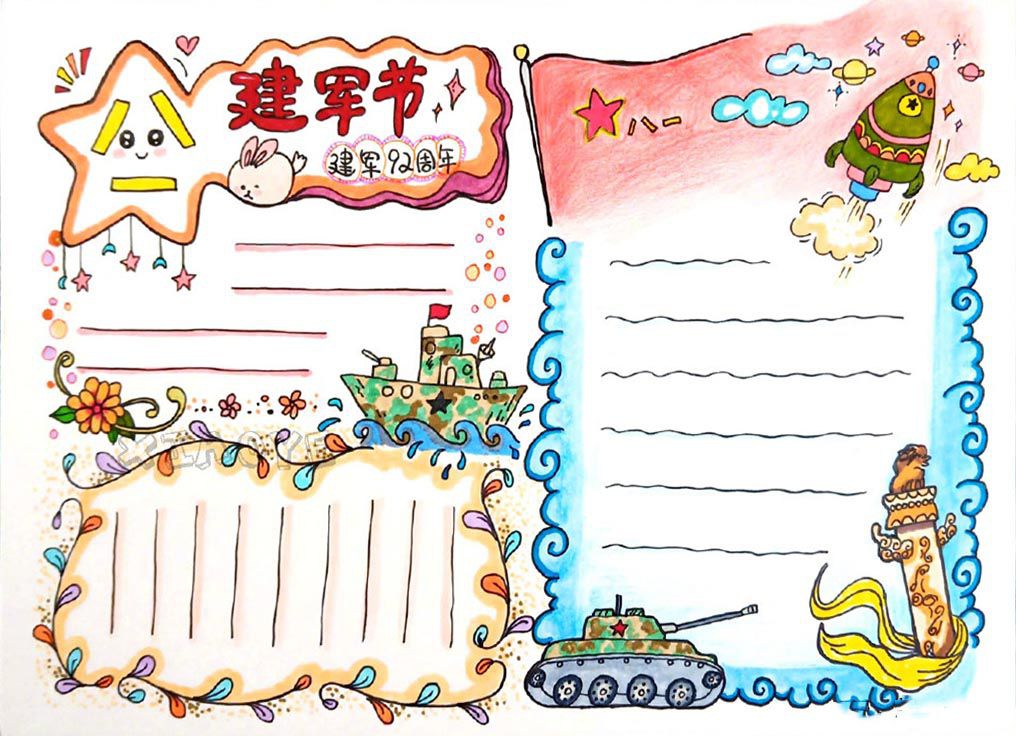 八一
建军节
建军92周年
八一